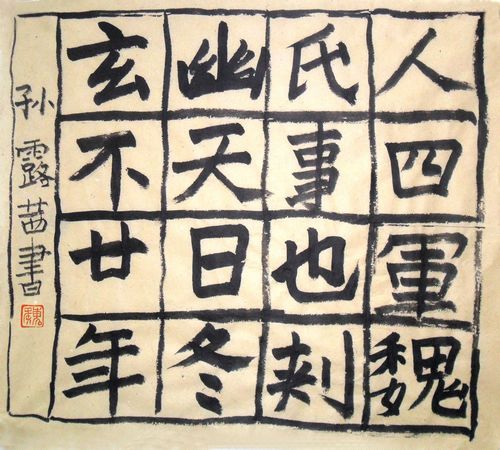 人四軍魏
氏事也刾
幽天日冬
玄不廿年
孙露茜書